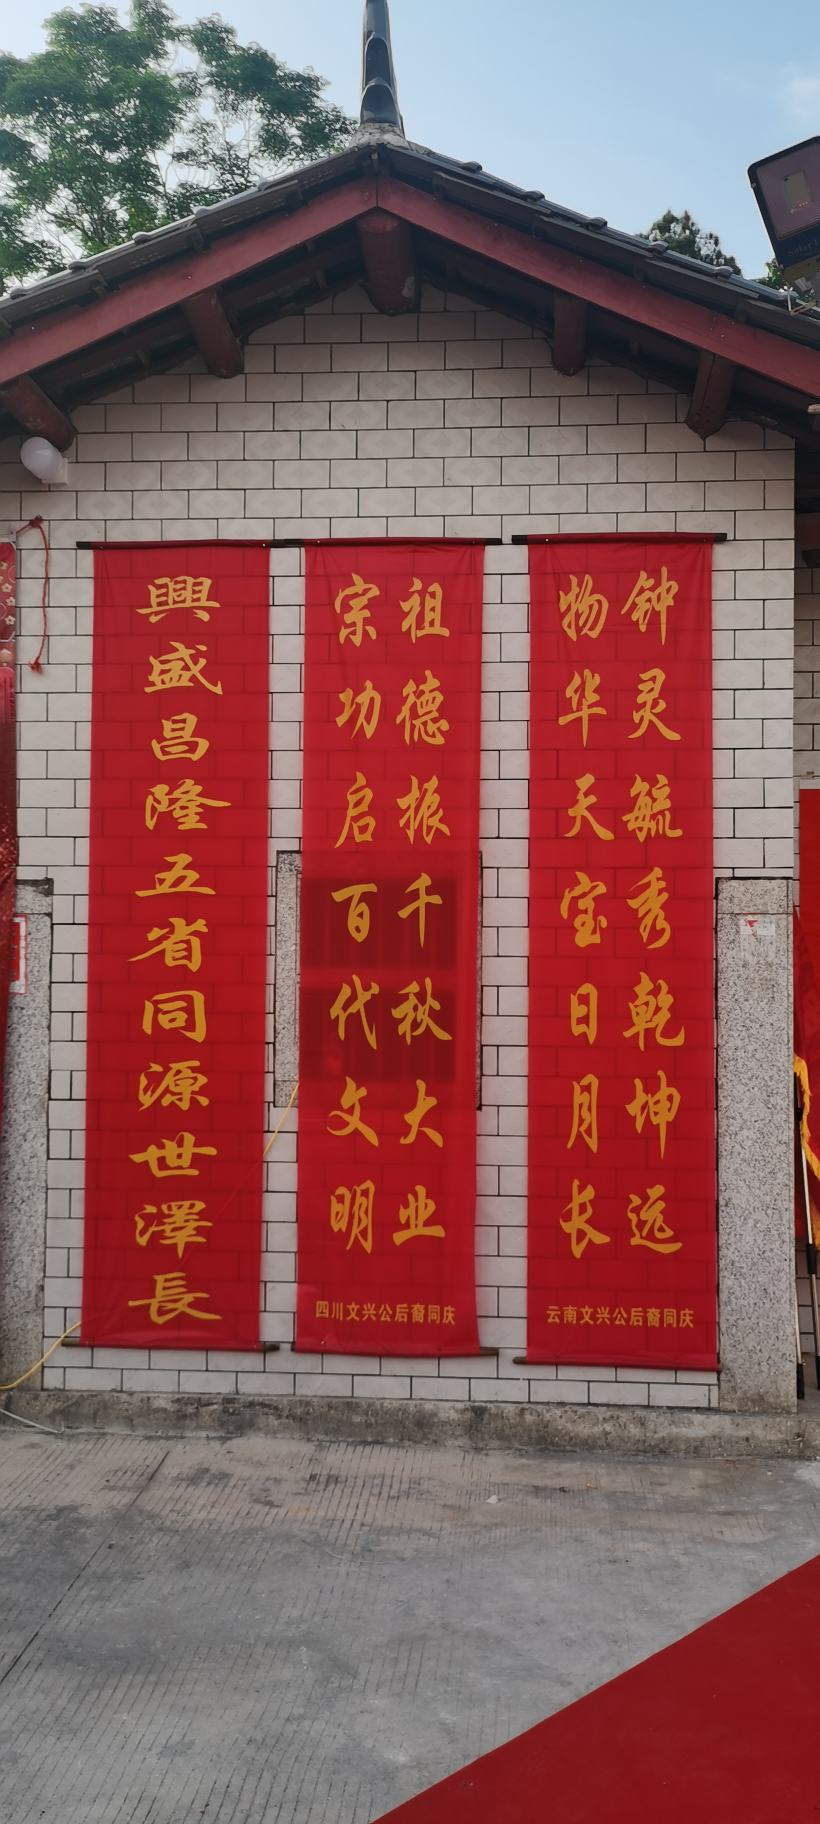 钟灵毓秀乾坤远
物华天宝日月长
云南文兴公后裔同庆
祖德振千秋大业
宗功启百代文明
四川文兴公后裔同庆
興盛昌隆五省同源世澤長